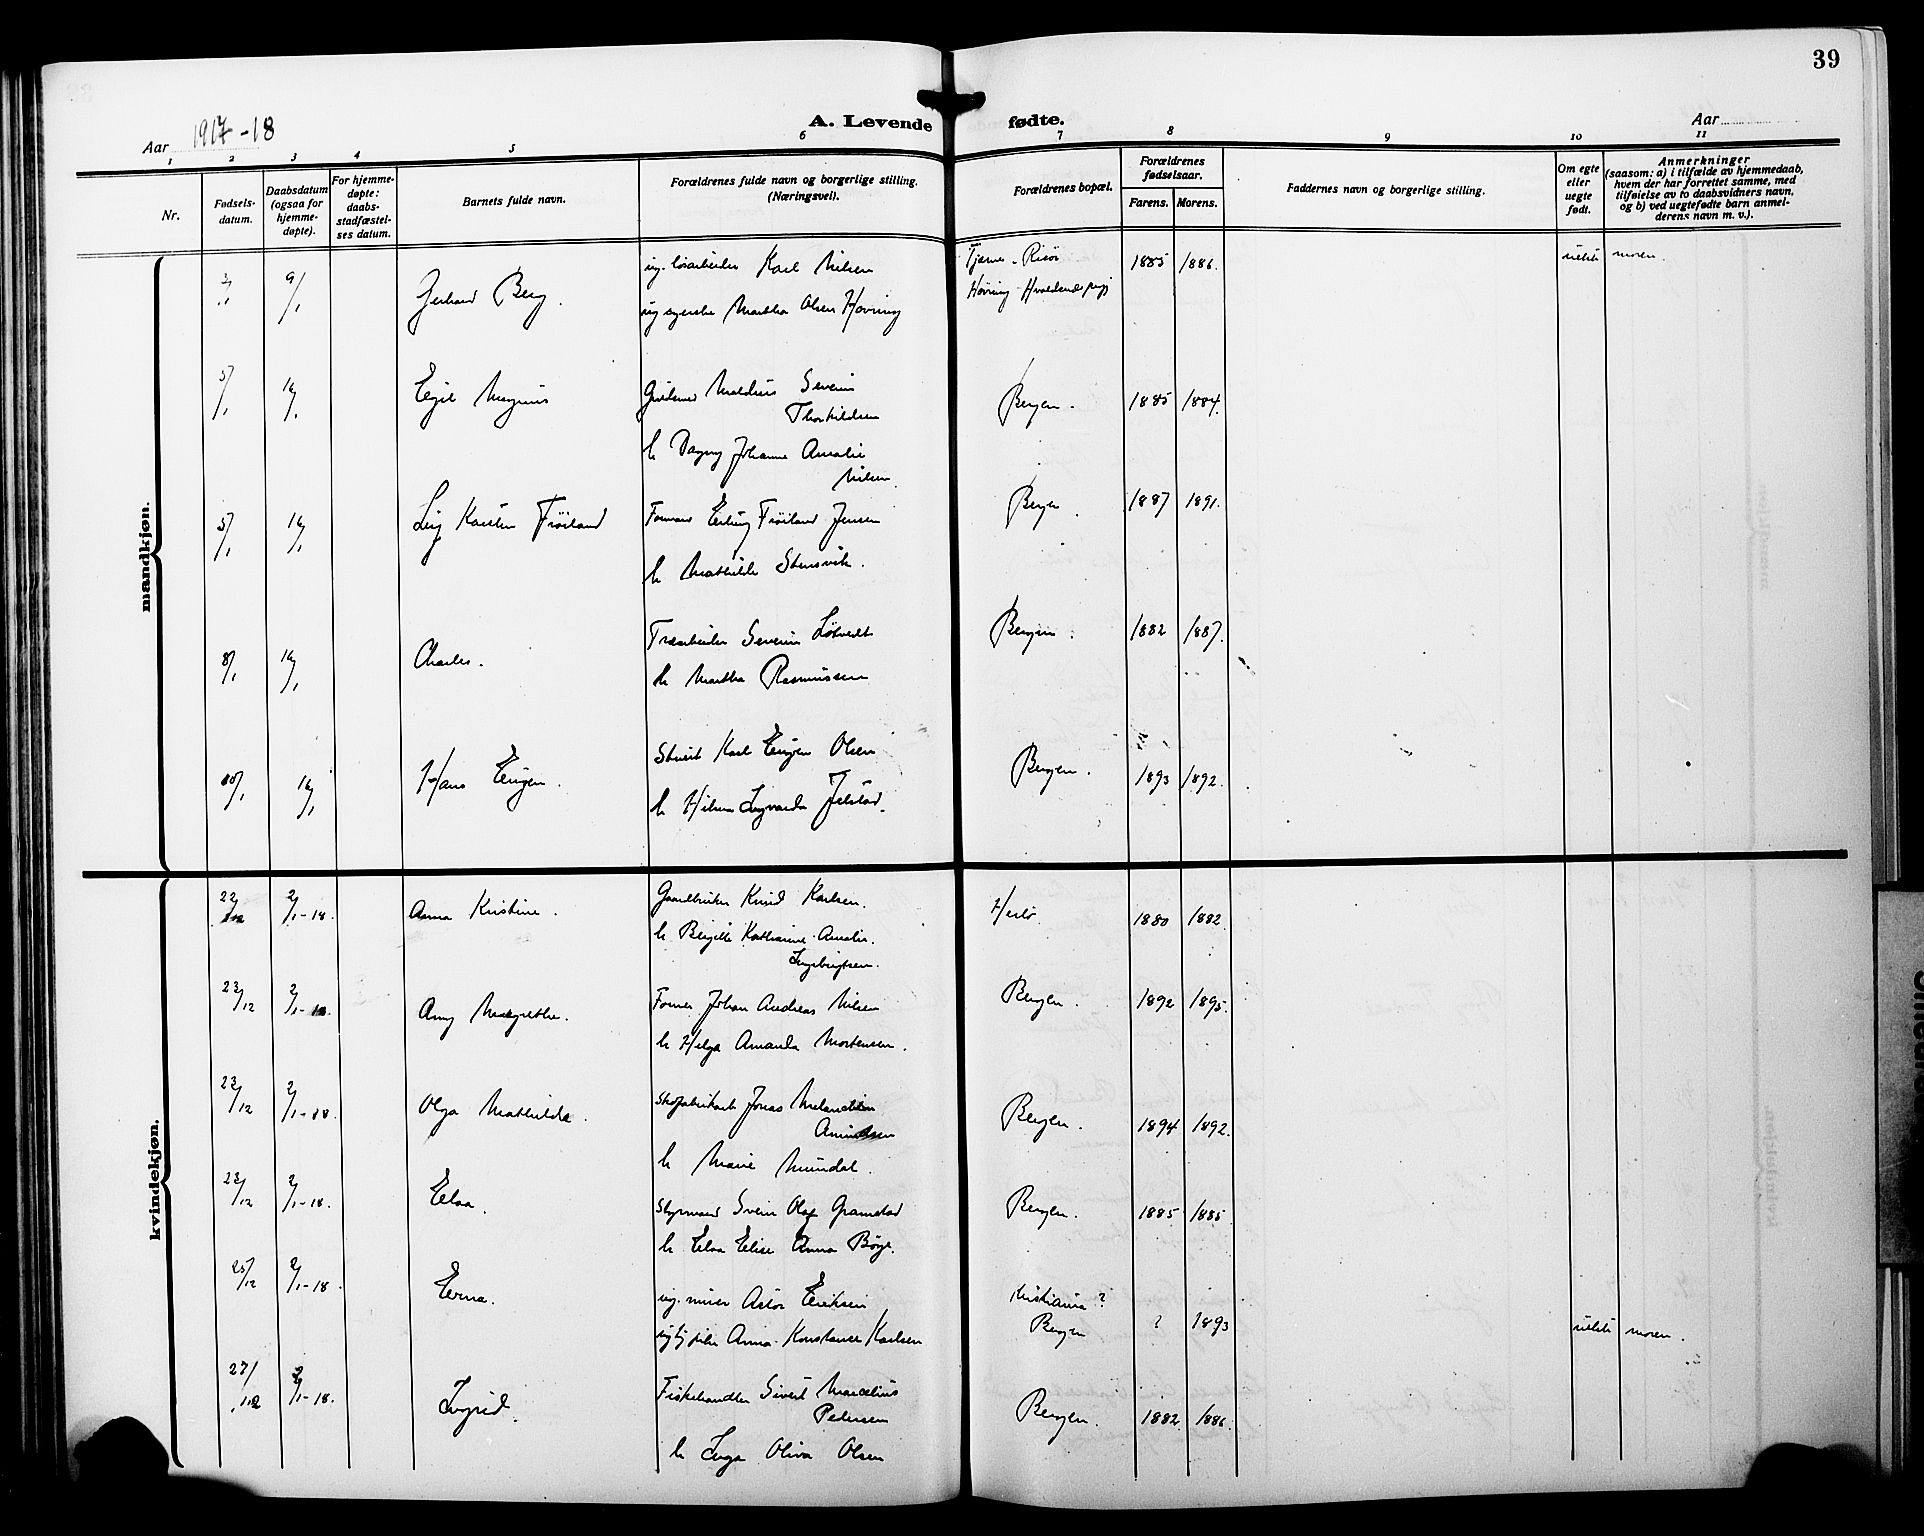 39
Aar 1917-18
A. Levende fødte.
Aar
1 2 3 4 5 6 7 8 9 10 11
Nr.
Fødsels-
datum.
Daabsdatum
(ogsaa for
hjemme-
døpte).
For hjemme-
døpte:
daabs-
stadfæstel-
ses datum.
Barnets fulde navn.
Forældrenes fulde navn og borgerlige stilling.
(Næringsvei).
Forældrenes bopæl.
Forældrenes
fødselsaar.
Farens. Morens.
Faddernes navn og borgerlige stilling.
Om egte
eller
uegte
født.
Anmerkninger
(saasom: a) i tilfælde av hjemmedaab,
hvem der har forrettet samme, med
tilføielse av to daabsvidners navn,
og b) ved uegtefødte barn anmel-
derens navn m. v.).
mandkjøn.
9/1 Gerhard Berg. ug. løsarbeider Karl Nilsen Risør 1885 1886. uekte moren.
ug syerske Martha Olsen Høvring Høvring
5/1 16/1 Egil Magnus Severin Bergen. 1885 1884.
Thorkildsen
h. Dagny Johanne Amalie
Nilsen.
5/1 16/1 Leif Karsten Frøiland Formand Erling Frøiland Jensen Bergen 1887 1891.
h. Mathilde Stensvik.
8/1 16/1 Charles. Træarbeider Severin Løtvedt Bergen. 1882 1887.
h. Martha Rasmussen
10/1 16/1 Hans Eugen. Stuert Karl Eugen Olsen Bergen. 1893 1892.
h. Hilma Ingvarda Jelstad.
kvindekjøn.
22/12 2/1-18. Anna Kristine. Gaardbruker Knud Karlsen. Herlø 1880 1882
h. Birgitte Katharine Amalie.
Ingebrigtsen.
23/12 2/1-18. Any Margrethe. Former Johan Andreas Nilsen Bergen. 1892 1895.
h. Helga Amanda Mortensen.
23/12 2/1-18. Olga Mathilde. Skofabrikarb Jonas Bergen. 1894 1892.
Amundsen
h. Marie Mundal.
23/12 2/1-18. Elsa. Styrmand Svein Olaf Gramstad Bergen. 1885 1885
h. Elsa Elise Anna Bøge.
25/12 2/1-18. Erna. ug. murer Astor Eriksen Kristiania?
Anna Konstanse Karlsen Bergen ? 1893 uekte moren.
27/12 2/1-18. Ingrid. Fiskehandler Sivert Marcelius Bergen. 1882 1886.
Pedersen
h. Inga Oliva Olsen